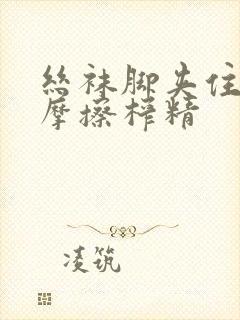 丝袜脚夹住
摩擦榨精
凌筑